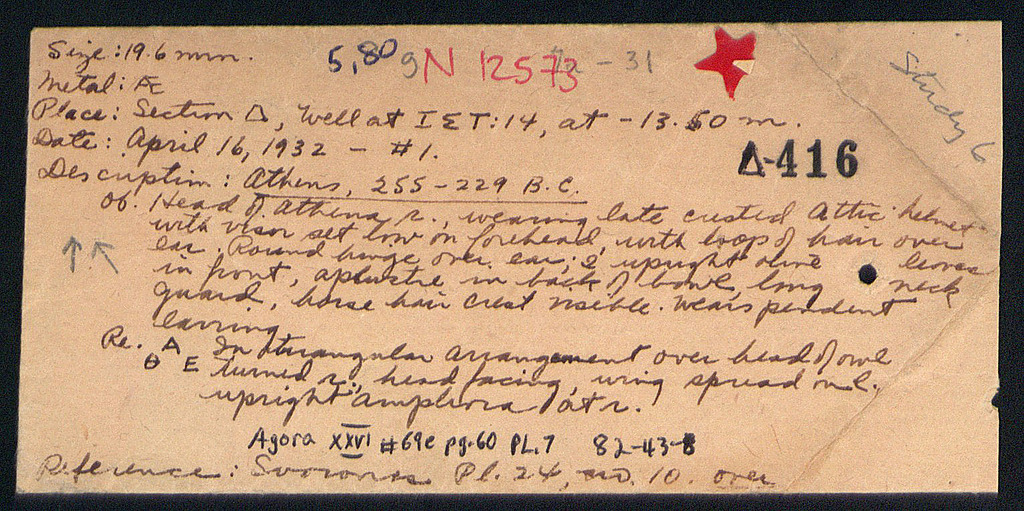 Size: 19.6 mm. 5,80 g N 12573 - 31
Metal: Æ
Study 6
Place: Section Δ, Well at ΙΣΤ:14, at -13.50 m.
Date: April 16, 1932 - #1.
Δ-416
Description: Athens, 255-229 B.C.
Ob. Head of Athena r., wearing late crested Attic helmet
with visor set low on forehead, with loop of hair over
ear. Round hinge over ear; 3 upright olive leaves
in front, aplustre in back of bowl, long neck
guard, horse hair crest visible. Wears pendent
earring.
Re. Α In triangular arrangement over head of owl
Θ Ε turned r., head facing, wing spread on l.
upright amphora at r.
Agora XXVI #69e pg.60 PL.7 82-43-8
Reference: Svoronos Pl. 24, no. 10. over